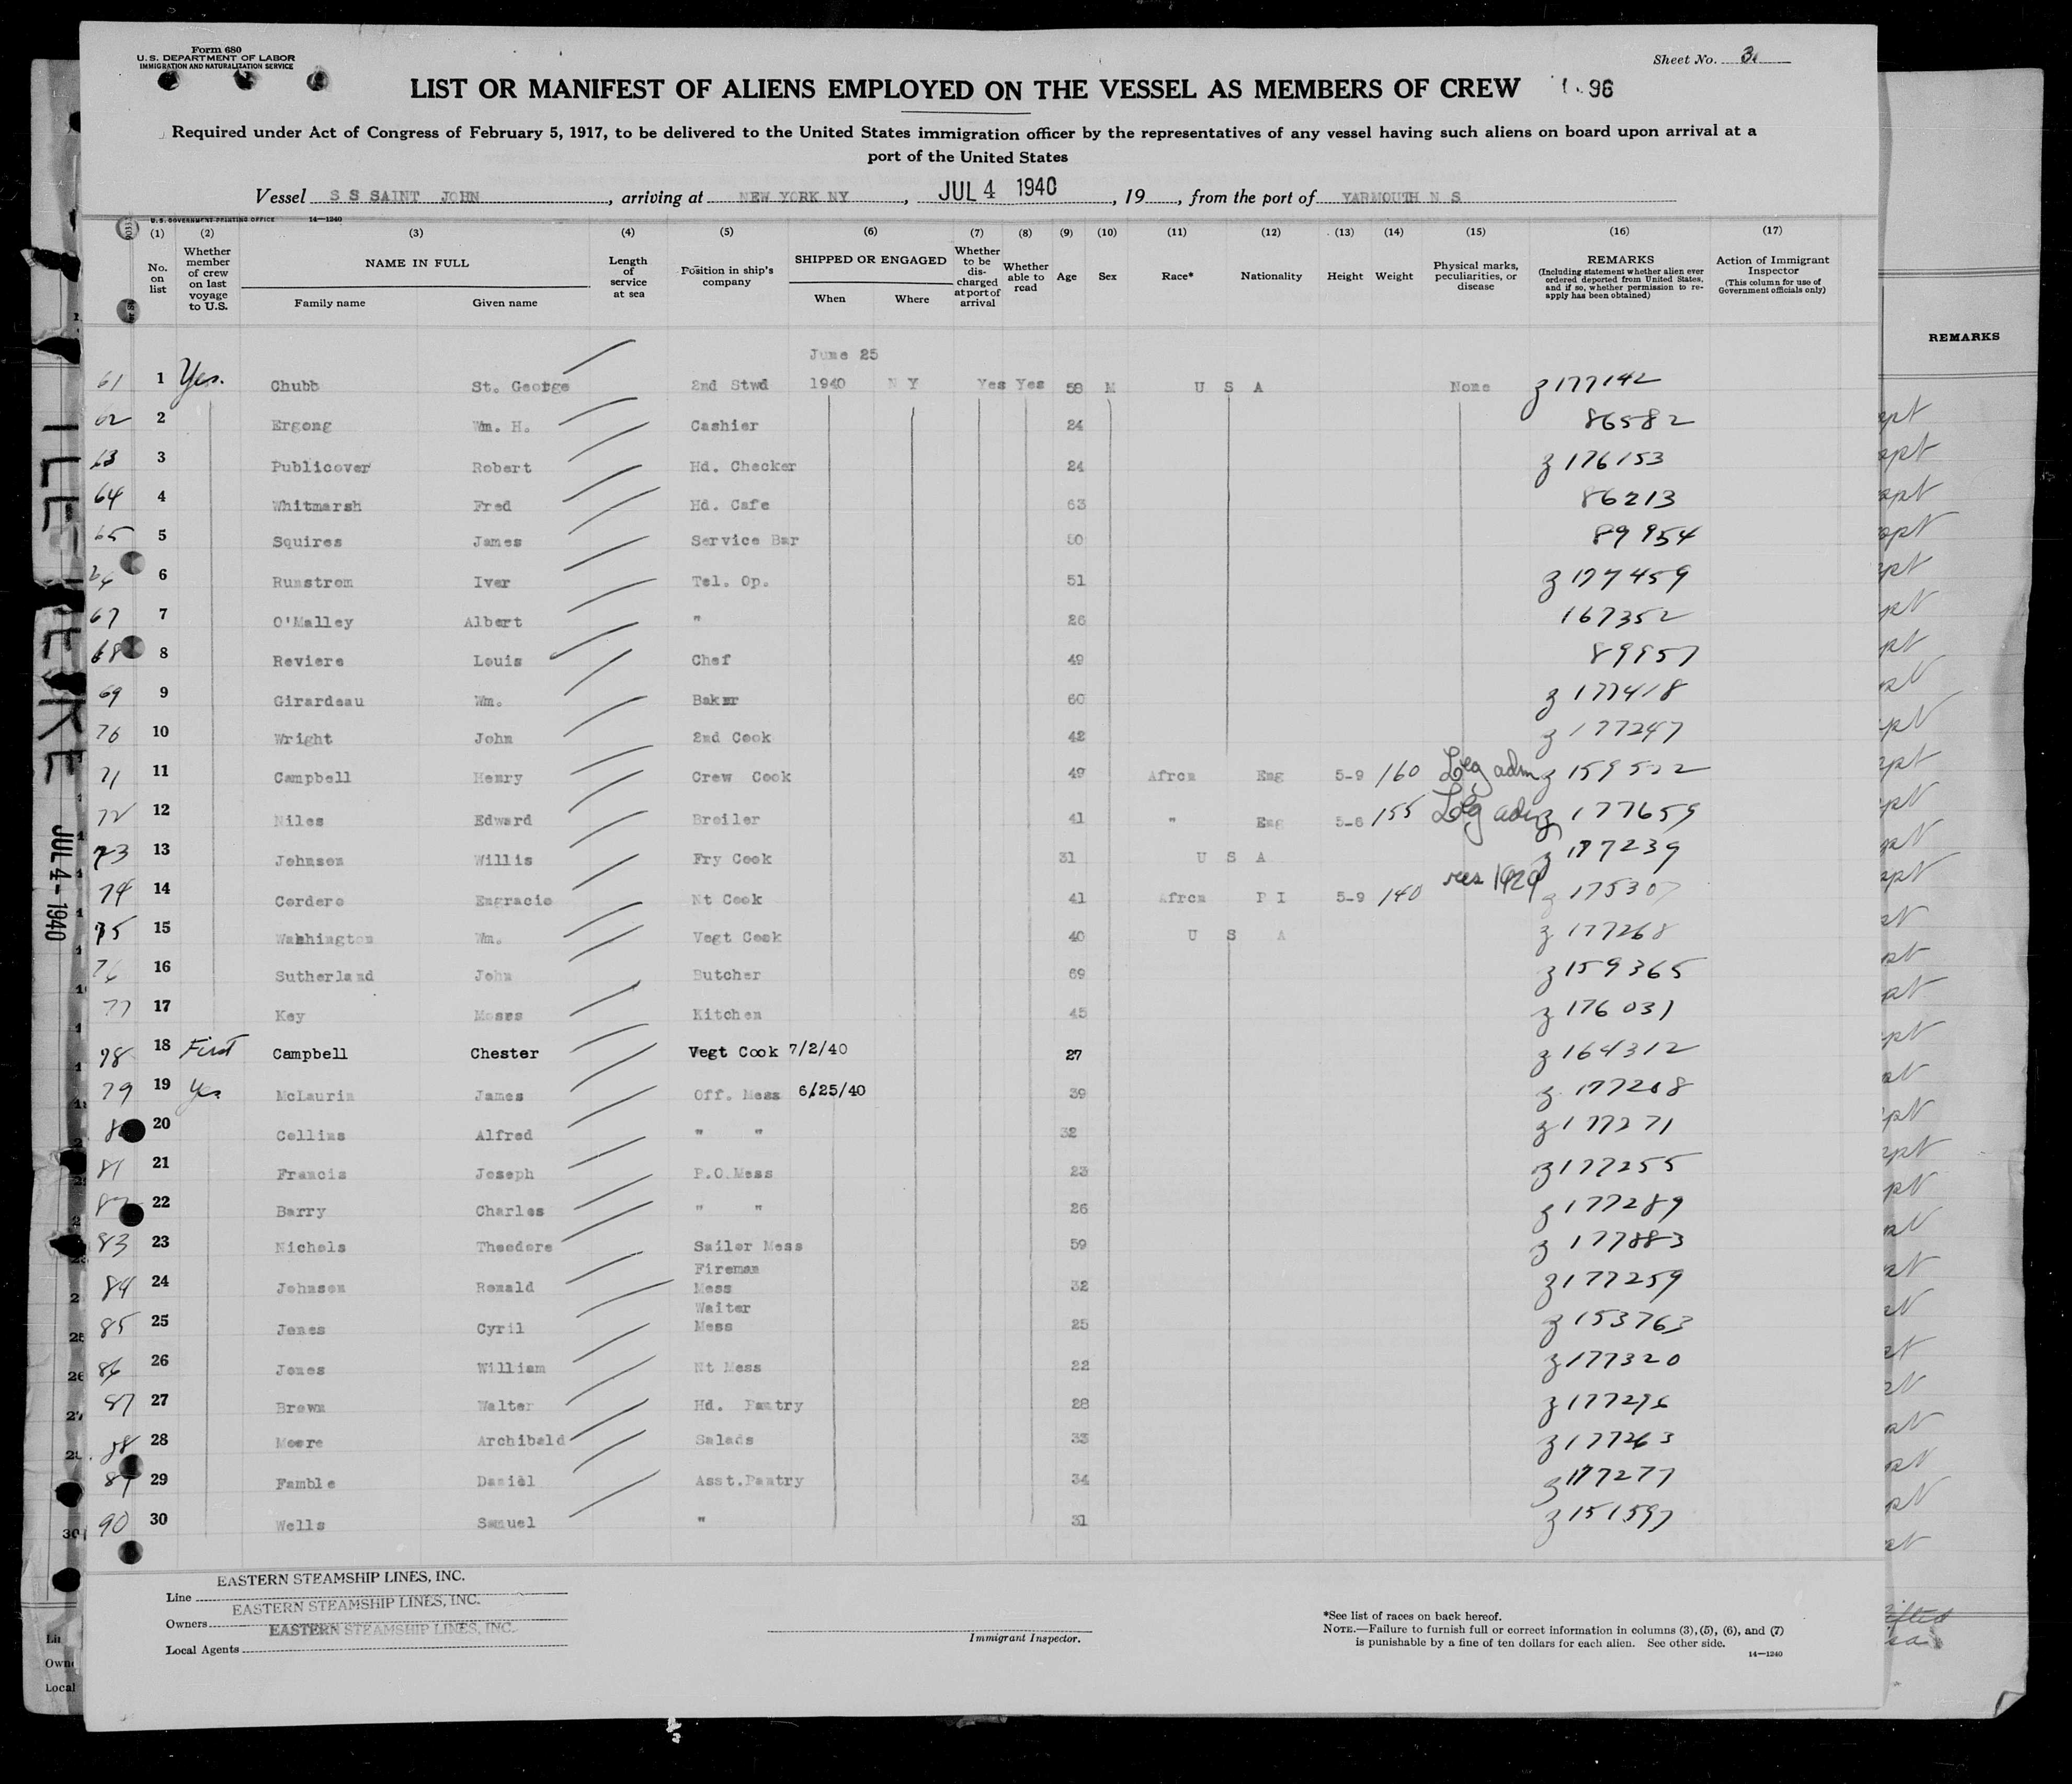 Form 680
U. S. DEPARTMENT OF LABOR
IMMIGRATION AND NATURALIZATION SERVICE
Sheet No. 3.
LIST OR MANIFEST OF ALIENS EMPLOYED ON THE VESSEL AS MEMBERS OF CREW 96
Required under Act of Congress of February 5, 1917, to be delivered to the United States immigration officer by the representatives of any vessel having such aliens on board upon arrival at a
port of the United States
Vessel S S SAINT JOHN, arriving at NEW YORK NY, JUL 4 1940, 19, from the port of YARMOUTH N S
U. S. GOVERNMENT PRINTING OFFICE 14—1240
(1) (2) (3) (4) (5) (6) (7) (8) (9) (10) (11) (12) (13) (14) (15) (16) (17)
No. on list
Whether member of crew on last voyage to U.S.
NAME IN FULL
Family name Given name
Length of service at sea
Position in ship's company
SHIPPED OR ENGAGED
When Where
Whether to be discharged at port of arrival
Whether able to read
Age Sex Race* Nationality Height Weight
Physical marks, peculiarities, or disease
REMARKS
(Including statement whether alien ever ordered deported from United States, and if so, whether permission to reapply has been obtained)
Action of Immigrant Inspector
(This column for use of Government officials only)
REMARKS
June 25
61 1 Yes. Chubb St. George 2nd Stwd 1940 N Y Yes Yes 58 M U S A None z 177142
62 2 Ergong Wm. H. Cashier 24 86582
63 3 Publicover Robert Hd. Checker 24 z 176153
64 4 Whitmarsh Fred Hd. Cafe 63 86213
65 5 Squires James Service Bar 50 89954
6 Runstrom Iver Tel. Op. 51 z 177459
67 7 O'Malley Albert " 26 167352
68 8 Reviere Louis Chef 49 89957
69 9 Girardeau Wm. Baker 60 z 177418
70 10 Wright John 2nd Cook 42 z 177247
71 11 Campbell Henry Crew Cook 49 Afrcn Eng 5-9 160 Leg adm z 159532
72 12 Niles Edward Broiler 41 " Eng 5-8 155 Leg adm z 177659
73 13 Johnson Willis Fry Cook 31 U S A z 177239
74 14 Cordero Engracio Nt Cook 41 Afrcn P I 5-9 140 res 1929 z 175307
75 15 Wahhington Wm. Vegt Cook 40 U S A z 177268
76 16 Sutherland John Butcher 69 z 159365
77 17 Key Moses Kitchen 45 z 176031
78 18 First Campbell Chester Vegt Cook 7/2/40 27 z 164312
79 19 Yes McLaurin James Off. Mess 6/25/40 39 z 177208
20 Collins Alfred " " 32 z 177271
81 21 Francis Joseph P.O.Mess 23 z 177255
22 Barry Charles " " 26 z 177289
83 23 Nichols Theodore Sailor Mess 59 z 177883
84 24 Johnson Ronald Fireman Mess 32 z 177259
85 25 Jones Cyril Waiter Mess 25 z 153763
86 26 Jones William Nt Mess 22 z 177320
87 27 Brown Walter Hd. Pantry 28 z 177296
88 28 Moore Archibald Salads 33 z 177263
89 29 Famble Daniel Asst.Pantry 34 z 177277
90 30 Wells Samuel " 31 z 151597
Line EASTERN STEAMSHIP LINES, INC.
Owners EASTERN STEAMSHIP LINES, INC.
Local Agents EASTERN STEAMSHIP LINES, INC.
Immigrant Inspector.
*See list of races on back hereof.
NOTE.—Failure to furnish full or correct information in columns (3), (5), (6), and (7)
is punishable by a fine of ten dollars for each alien. See other side.
14—1240
JUL 4-1940